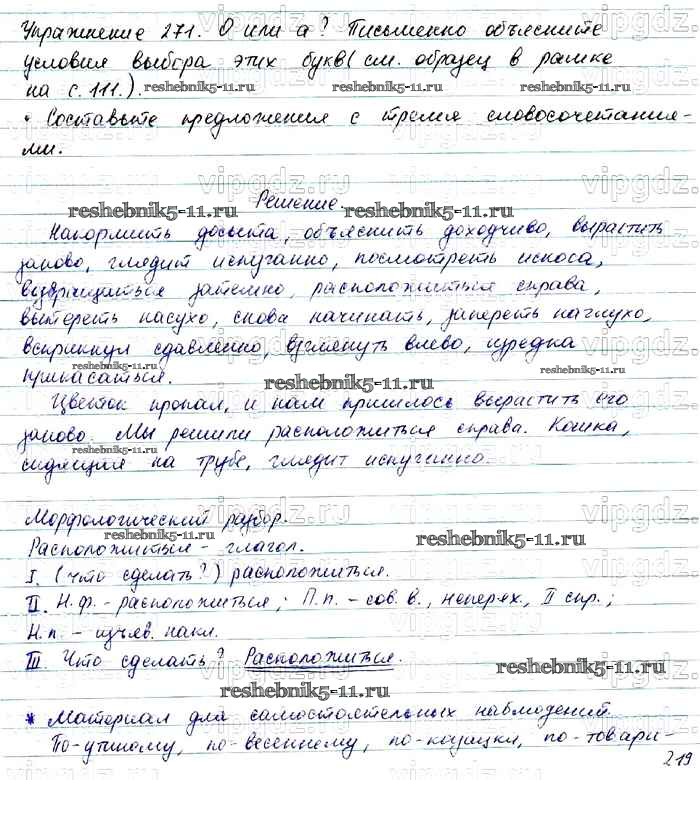 Упражнение 271. О или а? Письменно объясните
условия выбора этих букв (см. образец в рамке
на с. 111.).
reshebnik5-11.ru reshebnik5-11.ru
• Составьте предложения с тремя словосочетания-
ми.
Решение.
reshebnik5-11.ru reshebnik5-11.ru
Накормить досыта, объяснить доходчиво, вырастить
заново, глядит испуганно, посмотреть искоса,
возвращаться затемно, расположиться справа,
вытереть насухо, снова начинать, запереть наглухо,
вскрикнул сдавленно, взглянуть влево, изредка
прикасаться.
reshebnik5-11.ru
Цветок пропал, и нам пришлось вырастить его
заново. Мы решили расположиться справа. Кошка,
сидящая на трубе, глядит испуганно.
reshebnik5-11.ru
Морфологический разбор.
reshebnik5-11.ru reshebnik5-11.ru
Расположиться - глагол.
I. (что сделать?) расположиться.
II. Н.ф. - расположиться; П.п. - сов. в., неперех., II спр.;
Н.п. - изъяв. накл.
III. Что сделать? Расположиться.
reshebnik5-11.ru
reshebnik5-11.ru
* Материал для самостоятельных наблюдений.
По-утиному, по-весеннему, по-казацки, по-товари-
219